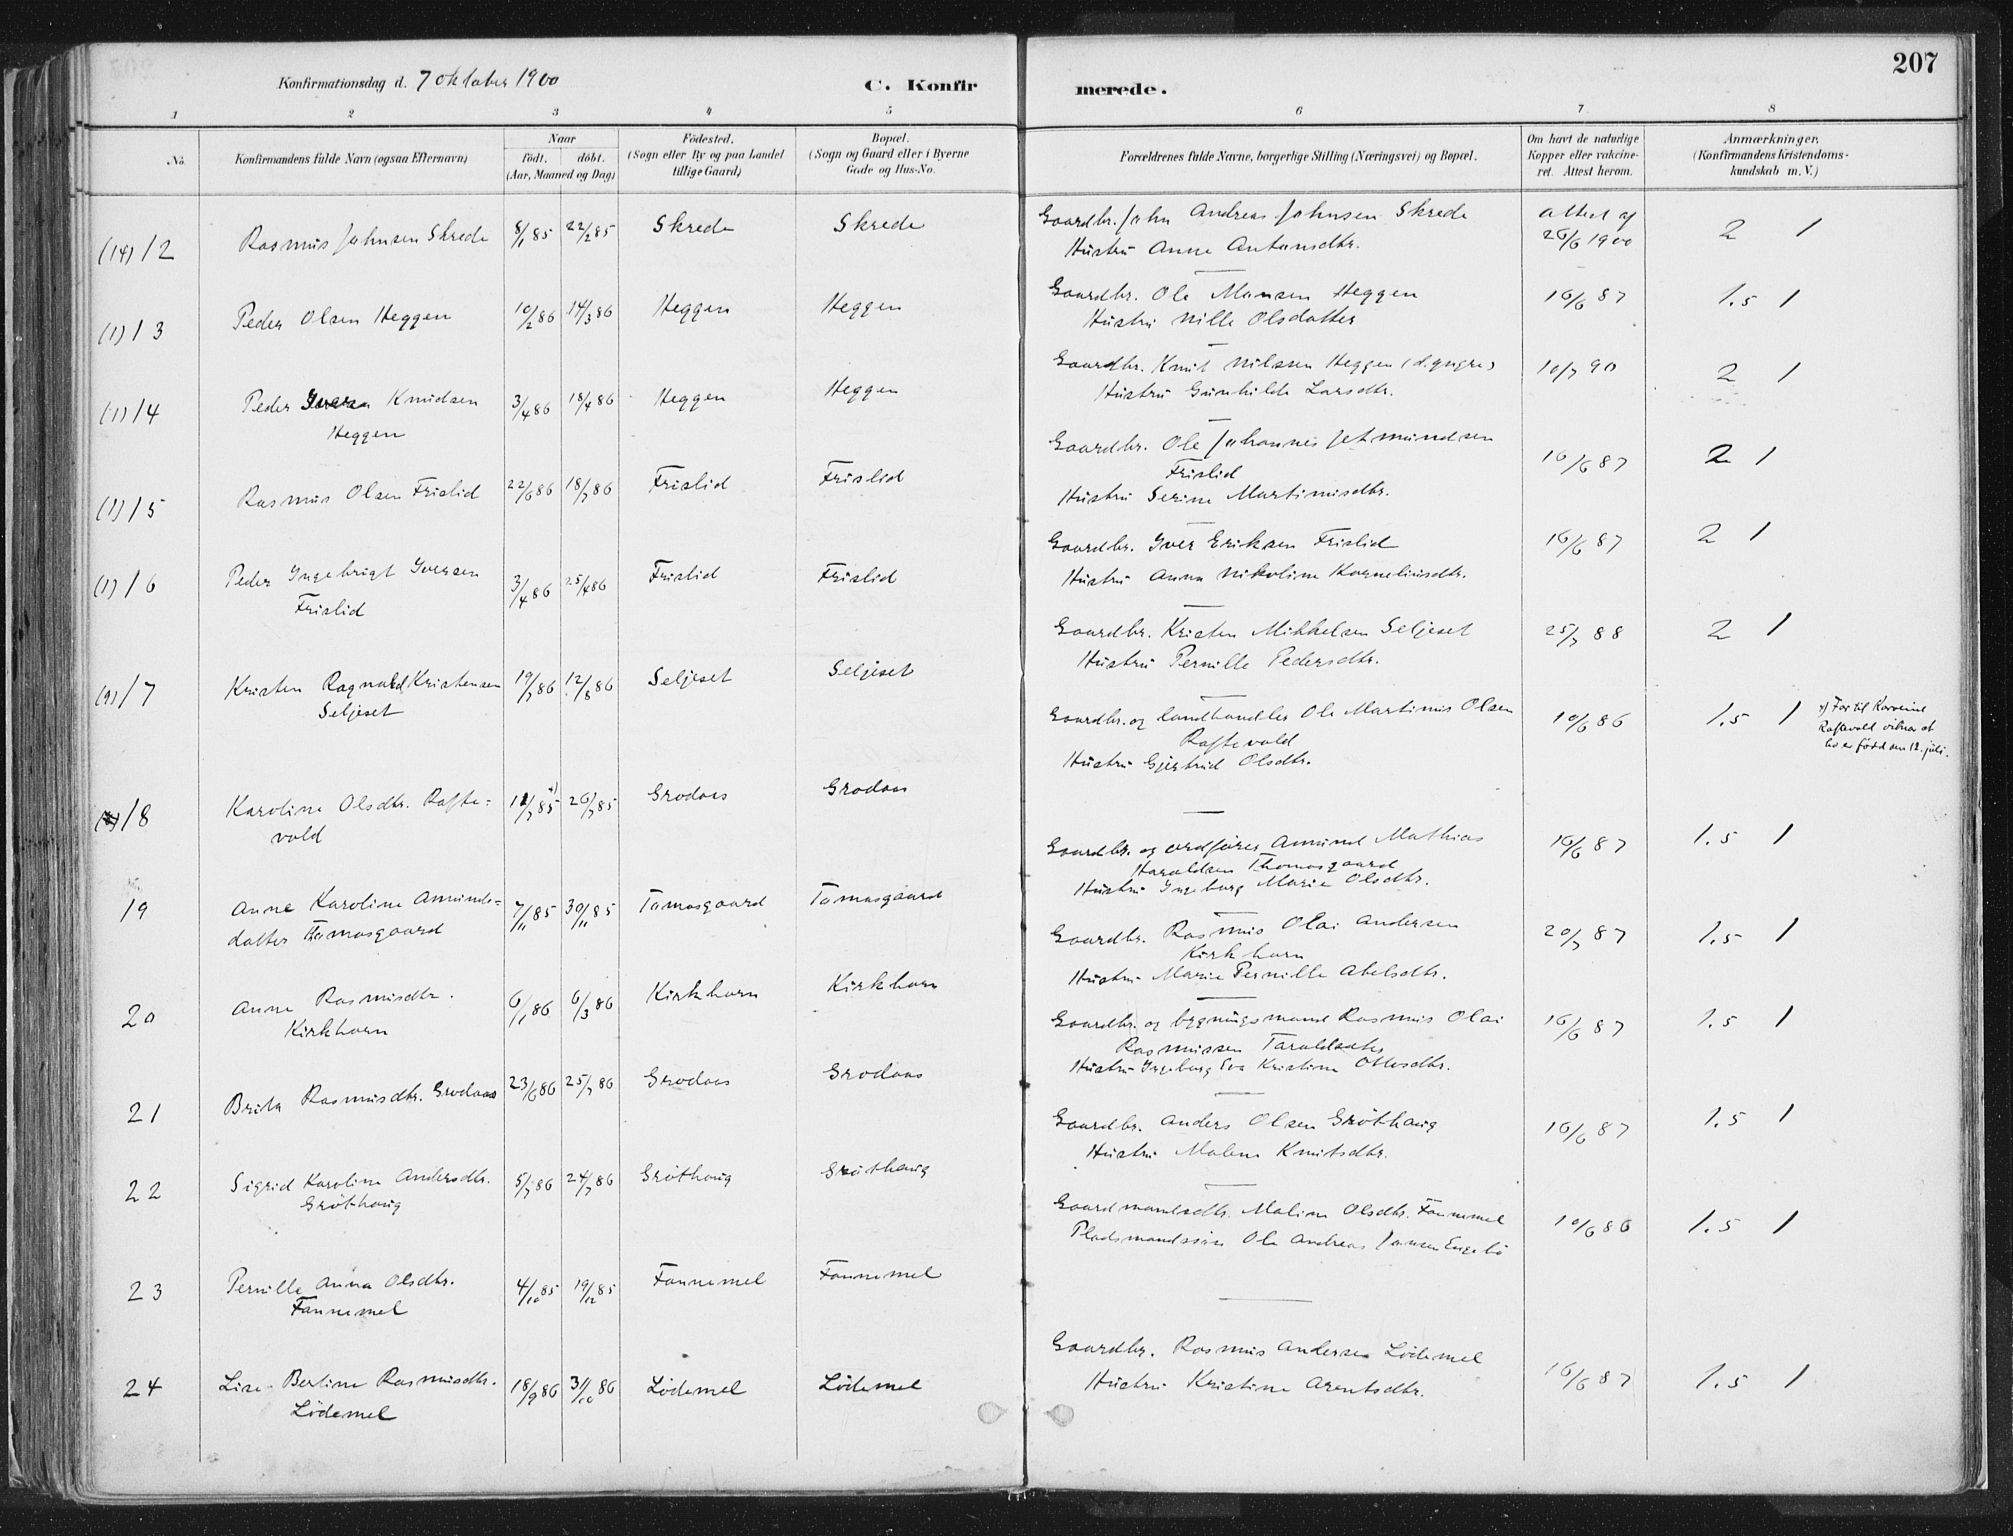 207
Konfirmationsdag d. 7 oktober 1900
C. Konfirmerede.
1 2 3 4 5 6 7 8
No.
Konfirmandens fulde Navn (ogsaa Efternavn)
Naar
födt. döbt.
(Aar, Maaned og Dag)
Födested.
(Sogn eller By og paa Landet
tillige Gaard)
Bopæl.
(Sogn og Gaard eller i Byerne
Gade og Hus-No.
Forældrenes fulde Navne, borgerlige Stilling (Næringsvei) og Bopæl.
Om havt de naturlige
Kopper eller vakcine-
ret. Attest herom.
Anmærkninger,
(Konfirmandens Kristendoms-
kundskab m. V.)
(14) 12 Rasmus Johnsen Skrede 8/1 85 22/2 85 Skrede Skrede
Gaardbr. John Andreas Johnsen Skrede
Hustru Anne Antonsdtr.
attest af
26/6 1900
2 1
(1) 13 Peder Olsen Heggen 10/2 86 14/3 86 Heggen Heggen
Gaardbr. Ole Monsen Heggen
Hustru Nille Olsdatter
16/6 87 1.5 1
(1) 14 Peder Knudsen
Heggen
3/4 86 18/4 86 Heggen Heggen
Gaardbr. Knut Nilssen Heggen (d. yngre)
Hustru Gunhilde Larsdtr.
10/7 90 2 1
(1) 15 Rasmus Olsen Frislid 22/6 86 18/7 86 Frislid Frislid
Gaardbr. Ole Johannes Jetmundsen
Frislid
Hustru Serine Martinusdtr.
16/6 87 2 1
(1) 16 Peder Ingebrigt Iversen
Frislid
3/4 86 25/4 86 Frislid Frislid
Gaardbr. Iver Eriksen Frislid
Hustru Anna Nikoline Korneliusdtr.
16/6 87 2 1
(9) 17 Kristen Ragnvald Kristensen
Seljeset
19/7 86 12/8 86 Seljeset Seljeset
Gaardbr. Kristen Mikkelsen Seljeset
Hustru Pernille Pedersdtr.
25/7 88 2 1
18 Karoline Olsdtr. Rafte-
vold
12/7 85 x) 26/7 85 Grodaas Grodaas
Gaardbr. og landhandler Ole Martinus Olsen
Raftevold
Hustru Gjertrud Olsdtr.
10/6 86 1.5 1
x) Far til Karoline
Raftevold vidner at
hu er född den 12. juli.
19 Anne Karoline Amunds-
datter Tomasgaard
7/11 85 30/11 85 Tomasgaard Tomasgaard
Gaardbr. og ordförer Amund Mathias
Haraldsen Thomasgaard
Hustru Ingeborg Marie Olsdtr.
16/6 87 1.5 1
20 Anne Rasmusdtr.
Kirkhorn
6/1 86 6/3 86 Kirkhorn Kirkhorn
Gaardbr. Rasmus Olai Andersen
Kirkhorn
Hustru Marie Pernille Abelsdtr.
20/7 87 1.5 1
21 Brita Rasmusdtr. Grodaas 23/6 86 25/7 86 Grodaas Grodaas
Gaardbr. og bygningsmand Rasmus Olai
Rasmussen Taraldsæter
Hustru Ingeborg Eva Kristine Ottesdtr.
16/6 87 1.5 1
22 Sigrid Karoline Andersdtr.
Gröthaug
5/7 86 24/7 86 Gröthaug Gröthaug
Gaardbr. Anders Olsen Gröthaug
Hustru Malene Knutsdtr.
16/6 87 1.5 1
23 Pernille Anna Olsdtr.
Fannemel
4/10 85 19/12 85 Fannemel Fannemel
Gaardmandsdtr. Maline Olsdtr. Fannemel
Pladsmandssön Ole Andreas Jansen Engebö
10/6 86 1.5 1
24 Lise Bertine Rasmusdtr.
Lödemel
18/9 86 31/10 86 Lödemel Lödemel
Gaardbr. Rasmus Andersen Lödemel
Hustru Kristine Arentsdtr.
16/6 87 1.5 1